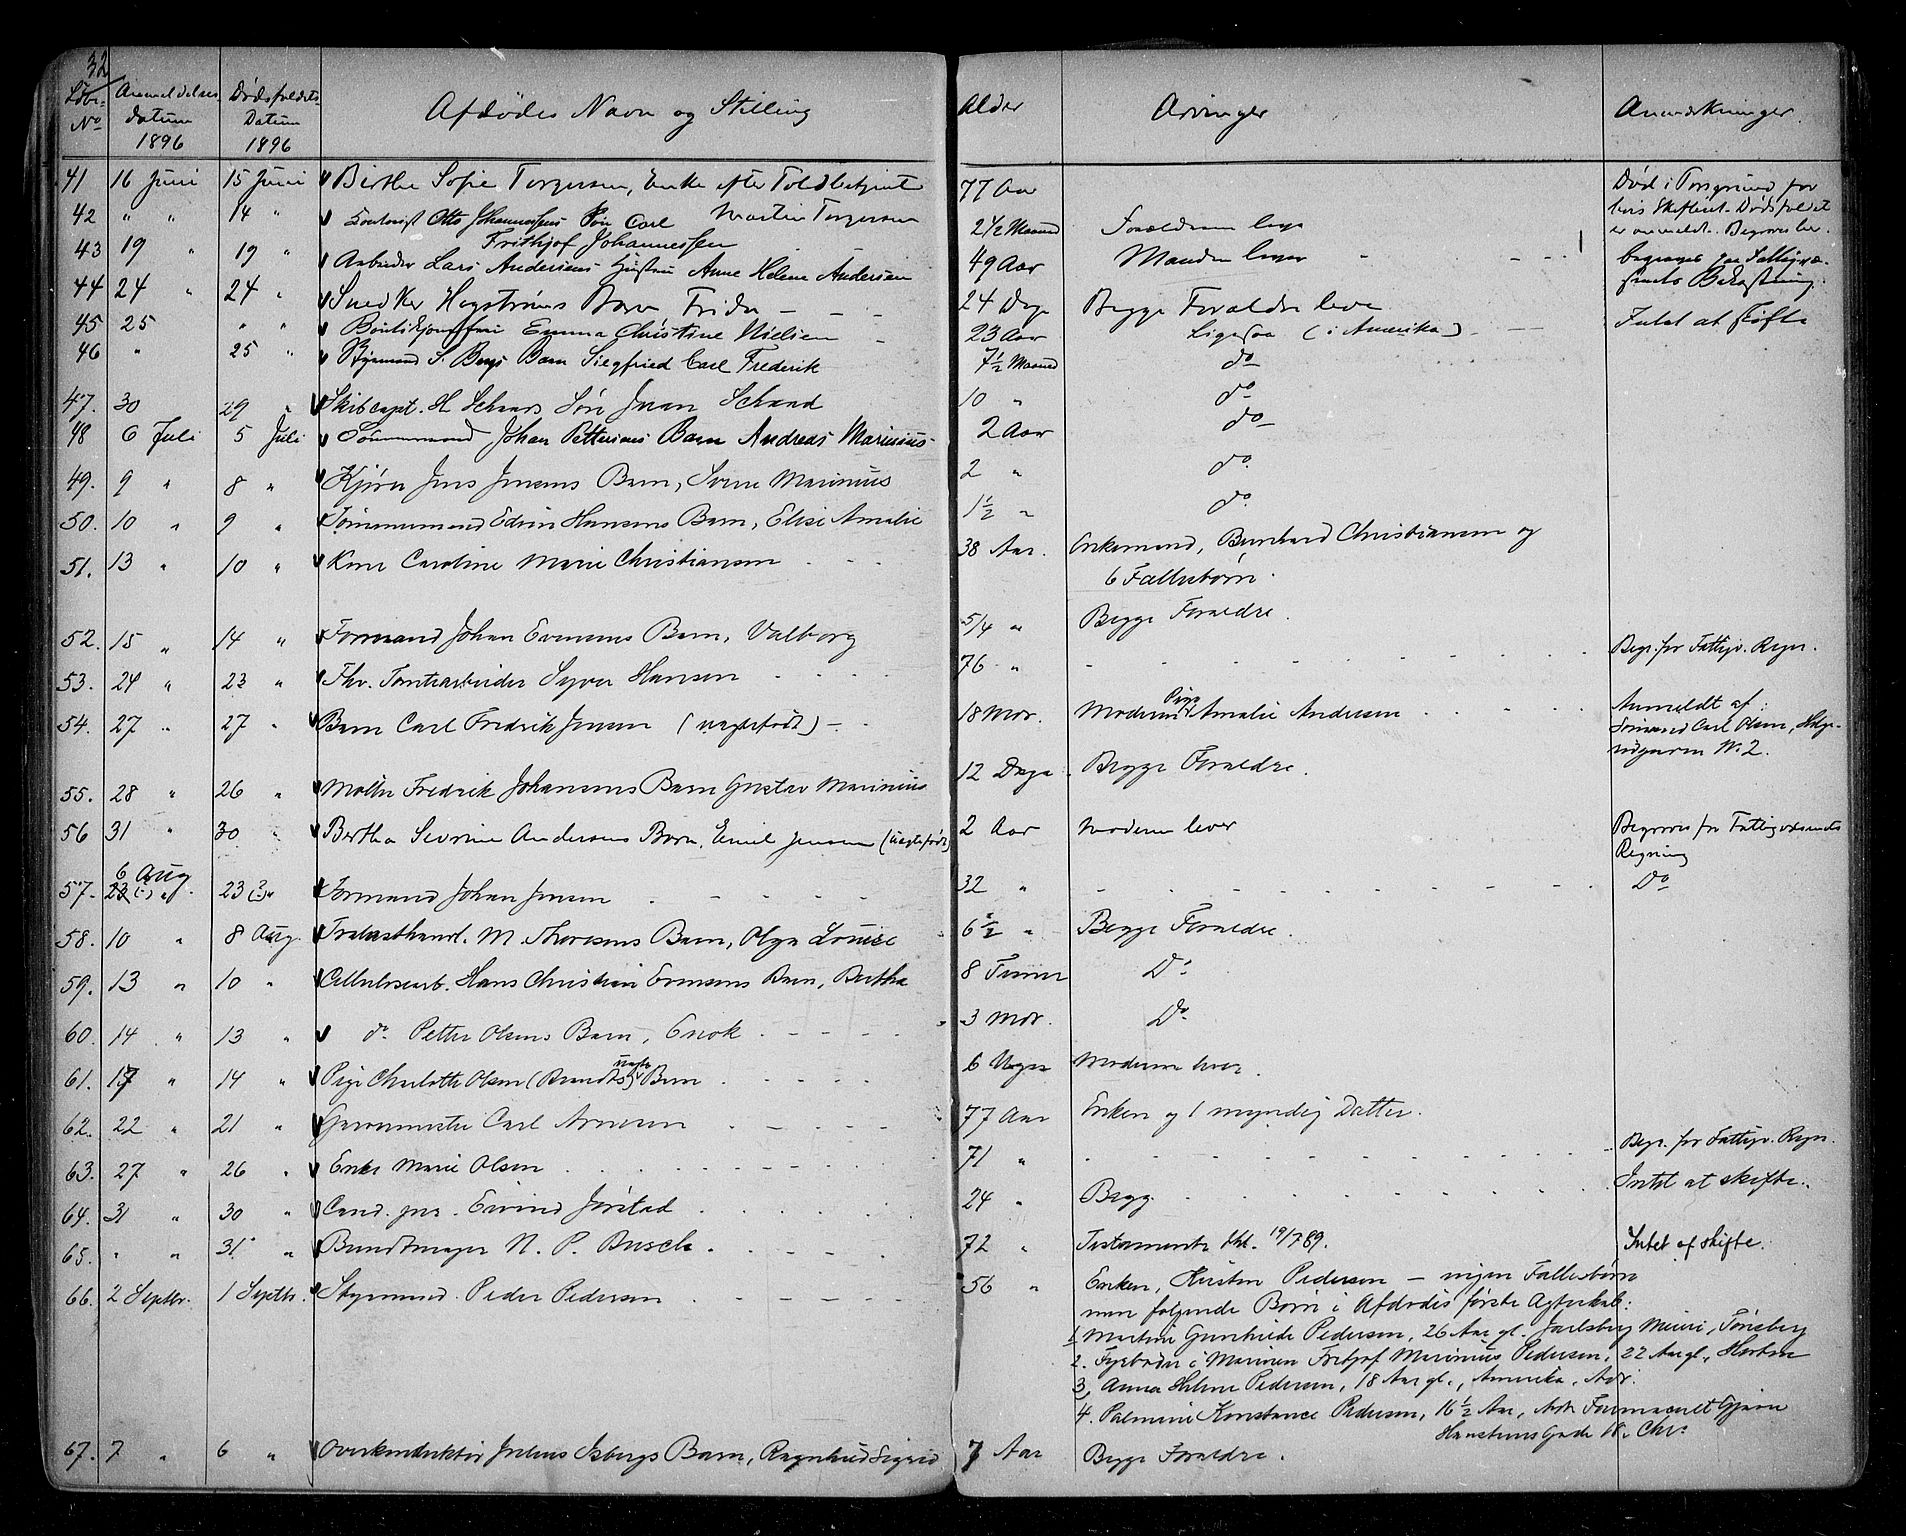 32
Løbe- No Anmeldelses datum 1896 Dødsfaldets Datum 1896 Afdødes Navn og Stilling Alder Arvinger Anmærkninger.
41 16 Juni 15 Juni Birthe Sofie Torgersen, Enke efter Toldbetjent Martin Torgersen 77 Aar Død i Porsgrund, for
42 " " 14 " Kontorist Otto Johannessens Søn Carl Frithjof Johannessen 2 1/2 Maaned Forældrene leve er anmeldt. Begraves her.
43 19 " 19 " Arbeider Lars Andersens Hustru Anne Helene Andersen 49 Aar Manden lever begraves paa Fattigvæ-
senets Bekostning.
44 24 " 24 " Snedker Hogstrøms Barn Frida 24 Dage Begge Forældre leve
45 25 " " Emma Christine Nielsen 23 Aar Ligesaa (i Amerika) Intet at skifte
46 " 25 " Styrmand S. Bergs Barn Siegfried Carl Frederik 7 1/2 Maaned do
47. 30 29 " Skibcapt. H Schaads Søn Juan Schaad 10 " do
48 6 Juli 5 Juli Sømmand Johan Pettersens Barn Andreas Marinius 2 Aar do
49. 9 " 8 " Kjører Jens Jensens Barn, Svene Marinius 2 " do
50. 10 " 9 " Tømmermand Edvin Hansens Barn, Elise Amalie 1 1/2 " do
51. 13 " 10 " Kone Caroline Marie Christiansen 38 Aar. Enkemand, Bernhard Christiansen og
6 Fællesbørn.
52. 15 " 14 " Formand Johan Evensens Barn, Valborg 5/4 " Begge Forældre.
53. 24 " 23 " Fhv. Tomtearbeider Syver Hansen 76 " Begr. for Fattigv. Regn.
54. 27 " 27 " Barn Carl Fredrik Jensen (uægtefødt) 18 Mdr. Moderen Pige Amalie Andersen Anmeldt af:
Sømand Carl Olsen, No 2.
55. 28 " 26 " Møller Fredrik Johansens Barn Gustav Marinius 12 Dage Begge Forældre.
56 31 " 30 " Bertha Sevrine Andersens Barn, Emil Jensen (uægtefødt) 2 Aar Moderen lever Begraves for Fattigvæsenets
Regning
57. 6 Aug 23 (?) " 23 (?) " Formand Johan Jensen 32 " Do
58. 10 " 8 Aug. Trælasthandl. M. Thoresens Barn, Olga Louise 6 1/2 " Begge Forældre.
59. 13 " 10 " Cellulosearb. Hans Christian Evensens Barn, Bertha 8 Timer Do
60. 14 " 13 " do Petter Olsens Barn, Enok 3 Mdr. Do
61. 17 " 14 " Pige Charlotte Olsen (Brandts) uægte Barn 6 Uger Moderen lever.
62. 22 " 21 " Garvermester Carl Arnesen 77 Aar Enken og 1 myndig Datter.
63. 27 " 26 " Enke Marie Olsen 71 " Begr. for Fattigv. Regn.
64. 31 " 30 " Cand. jur. Eivind Jørstad 24 " Begge Intet at skifte.
65. " " 31 " Bundtmager N. P. Busch. 72 " Testamente dat. 19/7 89. Intet at skifte.
66. 2 Septbr. 1 Septbr. Styrmand Peder Pedersen 56 " Enken, Kirsten Pedersen — ingen Fællesbørn
men følgende Børn i Afdødes første Ægteskab:
1 Martine Gunhilde Pedersen, 26 Aar gl. Jarlsberg Meieri, Tønsberg
2. Fyrbøder i Marinen Fritjof Marinius Pedersen, 22 Aar gl., Horten
3, Anna Helene Pedersen, 18 Aar gl., Amerika, Adr.
4. Palmine Konstance Pedersen, 16 1/2 Aar, Adr.
Gade 18, Chr.
67. 7 " 6 " Overkonduktør Julius Isbergs Barn, Ragnhild Sigrid 7 Aar Begge Forældre.